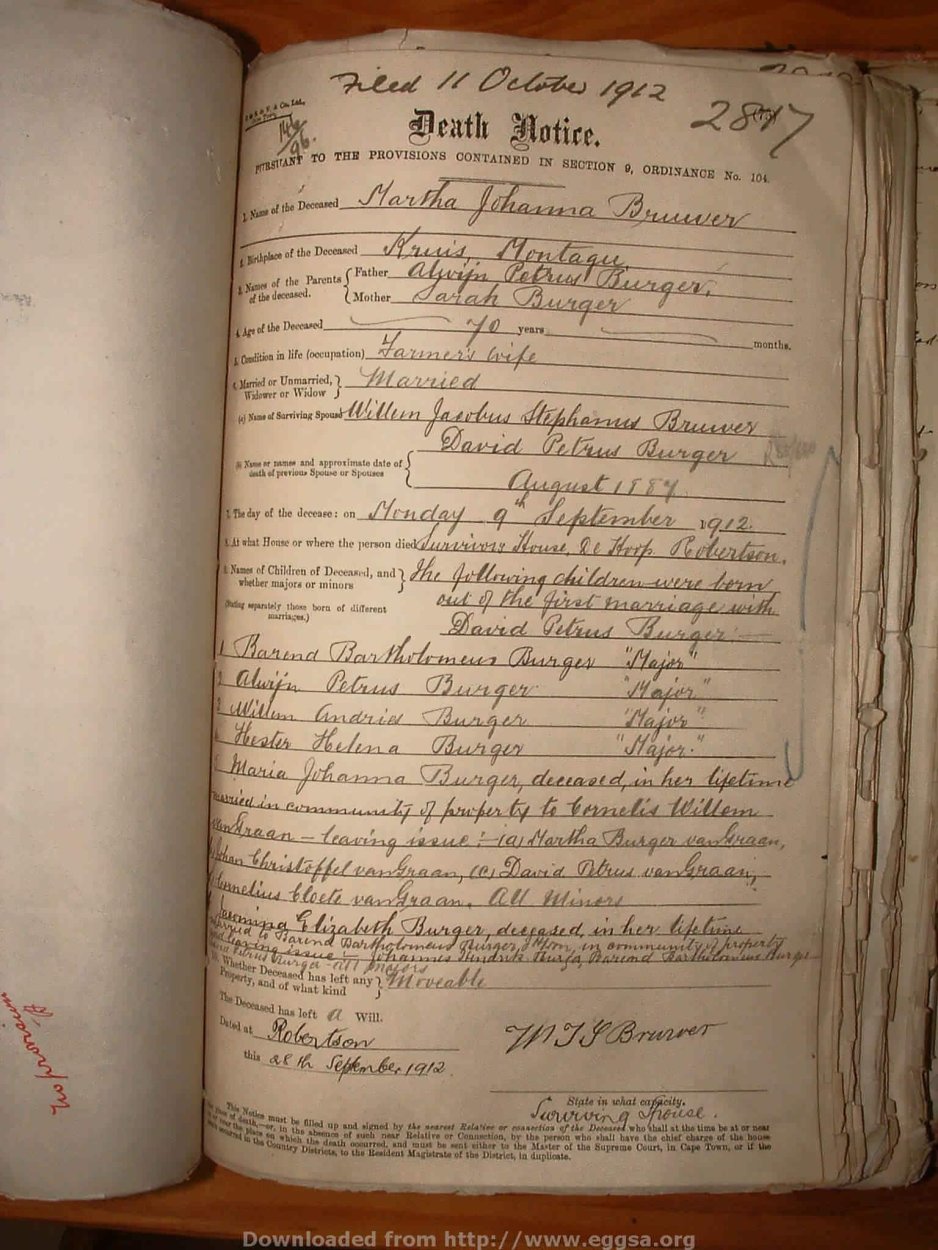 Filed 11 October 1912
Death Notice.
PURSUANT TO THE PROVISIONS CONTAINED IN SECTION 9, ORDINANCE No. 104.
1. Name of the Deceased Martha Johanna Bruwer
2. Birthplace of the Deceased Kruis, Montagu
3. Names of the Parents of the deceased. Father Alwijn Petrus Burger,
Mother Sarah Burger
4. Age of the Deceased 70 years months.
5. Condition in life (occupation) Farmer's wife
6. Married or Unmarried, Widower or Widow Married
(a) Name of Surviving Spouse Willem Jacobus Stephanus Bruwer
David Petrus Burger
(b) Name or names and approximate date of death of previous Spouse or Spouses
August 1887
7. The day of the decease: on Monday 9th September 1912.
8. At what House or where the person died House, De Hoop Robertson.
9. Names of Children of Deceased, and whether majors or minors The following children were born
(Stating separately those born of different marriages.) out of the first marriage with
David Petrus Burger
1 Barend Bartholomeus Burger "Major"
2 Alwijn Petrus Burger "Major"
3 Willem Andries Burger "Major"
4 Hester Helena Burger "Major."
5 Maria Johanna Burger, deceased, in her lifetime
married in community of property to Cornelis Willem
van Graan – leaving issue :- (a) Martha Burger van Graan,
Johan Christoffel van Graan, (c) David Petrus van Graan,
Cornelius Cloete van Graan. All Minors
Elizabeth Burger, deceased, in her lifetime
married to Barend Bartholomeus Burger, in community of property
and leaving issue :- Johannes Hendrik Burger, Barend Bartholomeus Burger
Petrus Burger - all majors
10. Whether Deceased has left any Property, and of what kind Moveable
The Deceased has left a Will.
Dated at Robertson
this 28th September 1912
W J S Bruwer
State in what capacity.
Surviving Spouse.
This Notice must be filled up and signed by the nearest Relative or connection of the Deceased who shall at the time be at or near
the place of death,—or, in the absence of such near Relative or Connection, by the person who shall have the chief charge of the house
or the place on which the death occurred, and must be sent either to the Master of the Supreme Court, in Cape Town, or if the
death occurred in the Country Districts, to the Resident Magistrate of the District, in duplicate.
Downloaded from http://www.eggsa.org